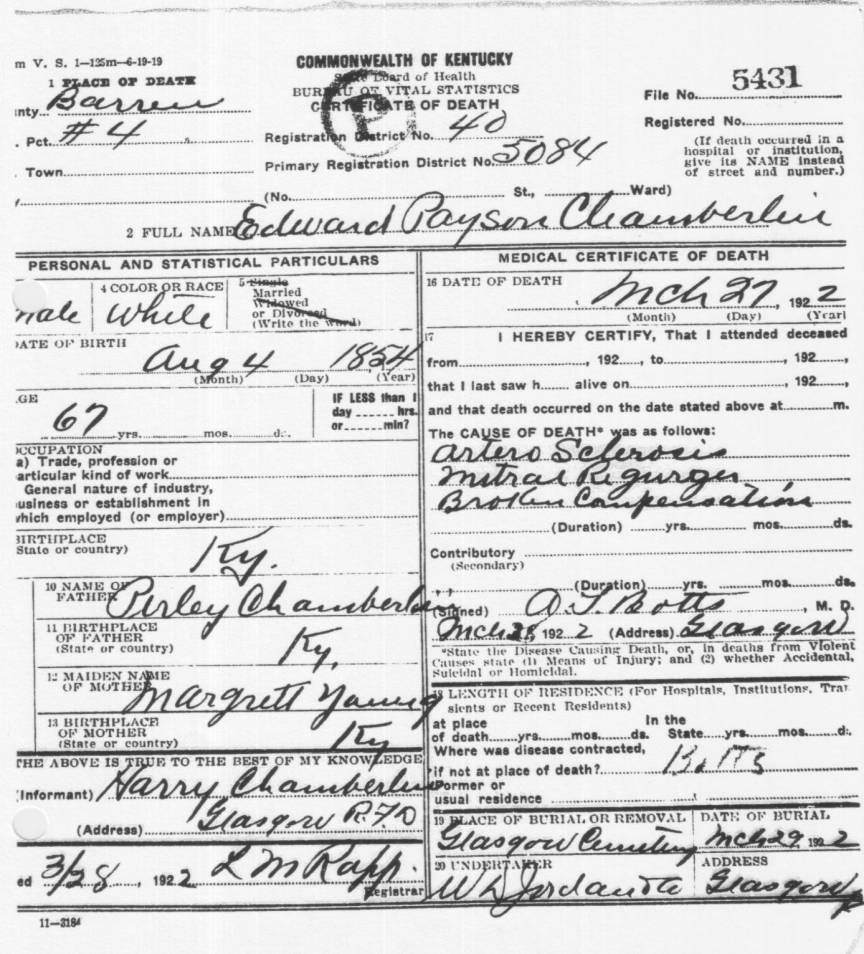 m V. S. 1—125m—6-19-19
COMMONWEALTH OF KENTUCKY
State Board of Health
BUREAU OF VITAL STATISTICS
CERTIFICATE OF DEATH
1 PLACE OF DEATH
nty Barren
Pct. #4
Town
File No. 5431
Registered No.
(If death occurred in a
hospital or institution,
give its NAME instead
of street and number.)
Registration District No. 40
Primary Registration District No. 5084
(No. St., Ward)
2 FULL NAME Edward Payson Chamberlin
PERSONAL AND STATISTICAL PARTICULARS
male
4 COLOR OR RACE
White
5 Single
Married
Widowed
or Divorced
(Write the word)
DATE OF BIRTH
Aug 4 1854
(Month) (Day) (Year)
GE
67 yrs. mos. ds.
IF LESS than 1
day hrs.
or min?
OCCUPATION
a) Trade, profession or
articular kind of work
General nature of industry,
usiness or establishment in
which employed (or employer)
BIRTHPLACE
State or country)
Ky.
10 NAME OF
FATHER Perley Chamberlin
11 BIRTHPLACE
OF FATHER
(State or country)
Ky,
12 MAIDEN NAME
OF MOTHER
Margrett Young
13 BIRTHPLACE
OF MOTHER
(State or country)
Ky
THE ABOVE IS TRUE TO THE BEST OF MY KNOWLEDGE
(Informant) Harry Chamberlin
(Address) Glasgow R.F.D
ed 3/28, 1922 L M Rapp.
Registrar
11—3184
MEDICAL CERTIFICATE OF DEATH
16 DATE OF DEATH
Mch 27, 1922
(Month) (Day) (Year)
17 I HEREBY CERTIFY, That I attended deceased
from , 192 , to , 192 ,
that I last saw h alive on , 192 ,
and that death occurred on the date stated above at m.
The CAUSE OF DEATH* was as follows:
Artero Sclerosis
Mitral Regurger
Broken Compensation
(Duration) yrs. mos. ds.
Contributory
(Secondary)
(Duration) yrs. mos. ds.
(Signed) Botts, M. D.
Mch 28, 1922 (Address) Glasgow
*State the Disease Causing Death, or, in deaths from Violent
Causes state (1) Means of Injury; and (2) whether Accidental,
Suicidal or Homicidal.
18 LENGTH OF RESIDENCE (For Hospitals, Institutions, Tran
sients or Recent Residents)
at place In the
of death yrs. mos. ds. State yrs. mos. d.
Where was disease contracted,
if not at place of death? Botts
Former or
usual residence
19 PLACE OF BURIAL OR REMOVAL
Glasgow Cemetery
DATE OF BURIAL
Mch 29 1922
20 UNDERTAKER
W L Jordan
ADDRESS
Glasgow